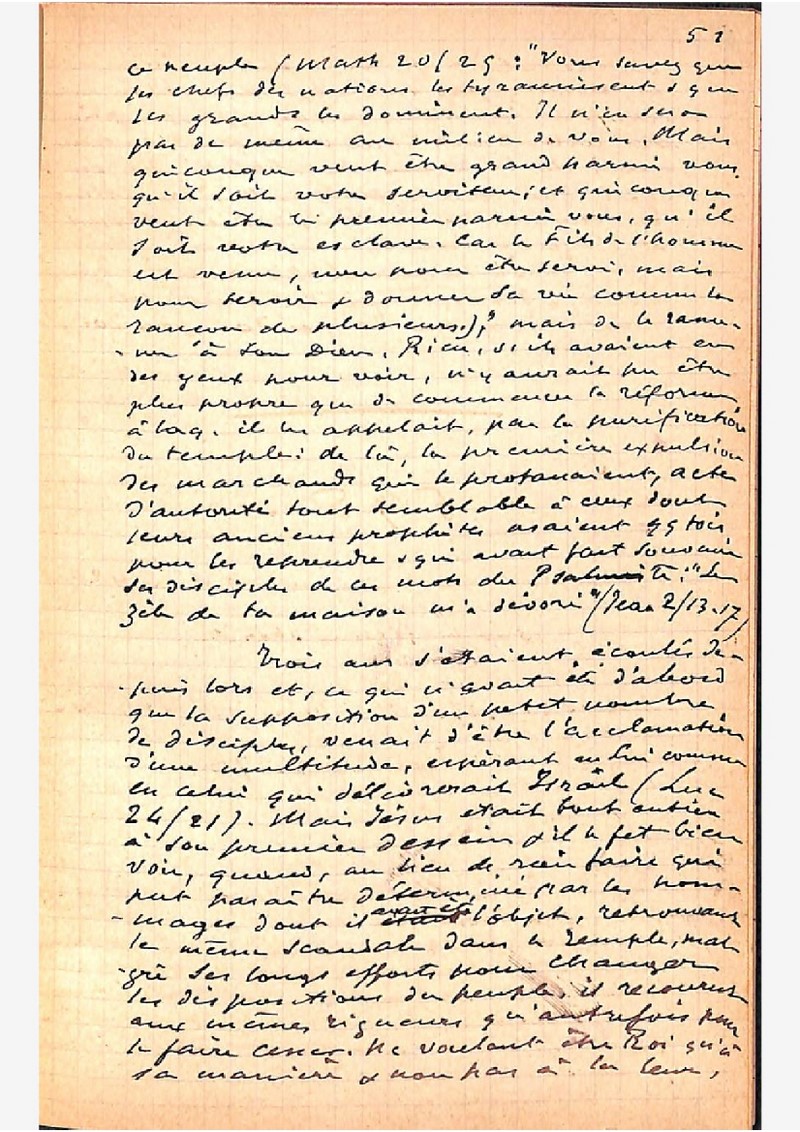 51
ce peuple (Math 20/25 : "Vous savez que
les chefs des nations les tyrannisent & que
les grands les dominent. Il n'en sera
pas de même au milieu de vous. Mais
quiconque veut être grand parmi vous,
qu'il soit votre serviteur; et quiconque
veut être le premier parmi vous, qu'il
soit votre esclave. Car le Fils de l'homme
est venu, non pour être servi, mais
pour servir & donner sa vie comme la
rançon de plusieurs.)", mais de le rame-
-ner à son Dieu. Rien, s'ils avaient eu
des yeux pour voir, n'y aurait pu être
plus propre que de commencer la réforme
à laq. il les appelait, par la purification
du temple: de là, la première expulsion
des marchands qui le profanaient, acte
d'autorité tout semblable à ceux dont
leurs anciens prophètes usaient qqfois
pour les reprendre & qui avait fait souvenir
ses disciples de ces mots du Psalmiste: "Le
zèle de ta maison m'a dévoré" (Jean 2/13-17)
Trois ans s'étaient écoulés de-
-puis lors et, ce qui n'avait été d'abord
que la supposition d'un petit nombre
de disciples, venait d'être l'acclamation
d'une multitude, espérant en Lui comme
en celui qui délivrerait Israël (Luc
24/21). Mais Jésus était tout entier
à son premier dessein & il le fit bien
voir, quand, au lieu de rien faire qui
pût paraître déterminé par les hom-
-mages dont il avait été l'objet, retrouvant
le même scandale dans le Temple, mal-
-gré ses longs efforts pour changer
les dispositions du peuple, il recourut
aux mêmes rigueurs qu'autrefois pour
le faire cesser. Ne voulant être Roi qu'à
sa manière & non pas à la leur,